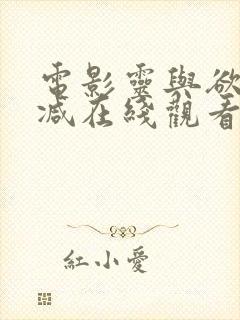 電影靈與欲
减在綫觀看
紅小愛